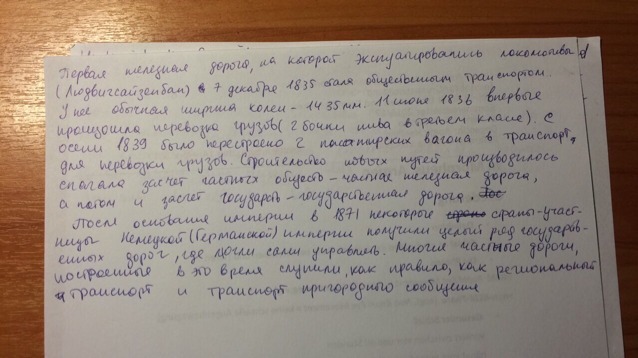 Первая железная дорога, на которой эксплуатировались локомотивы
(Людвигсайзенбан) 7 декабря 1835 стала общественным транспортом.
У нее обычная ширина колеи - 1435 мм. 11 июня 1836 впервые
произошла перевозка грузов (2 бочки пива в третьем класе). С
осени 1839 было перестроено 2 пассажирских вагона в транспорт,
для перевозки грузов. Строительство новых путей производилось
сначала засчет частных обществ - частная железная дорога,
а потом и засчет государств - государственная дорога.
После основание империи в 1871 некоторые страны-участ-
ницы Немецкой (Германской) империи получили целый ряд государств-
енных дорог, где могли сами управлять. Многие частные дороги,
построенные в это время служили, как правило, как региональный
транспорт и транспорт пригородного сообщения